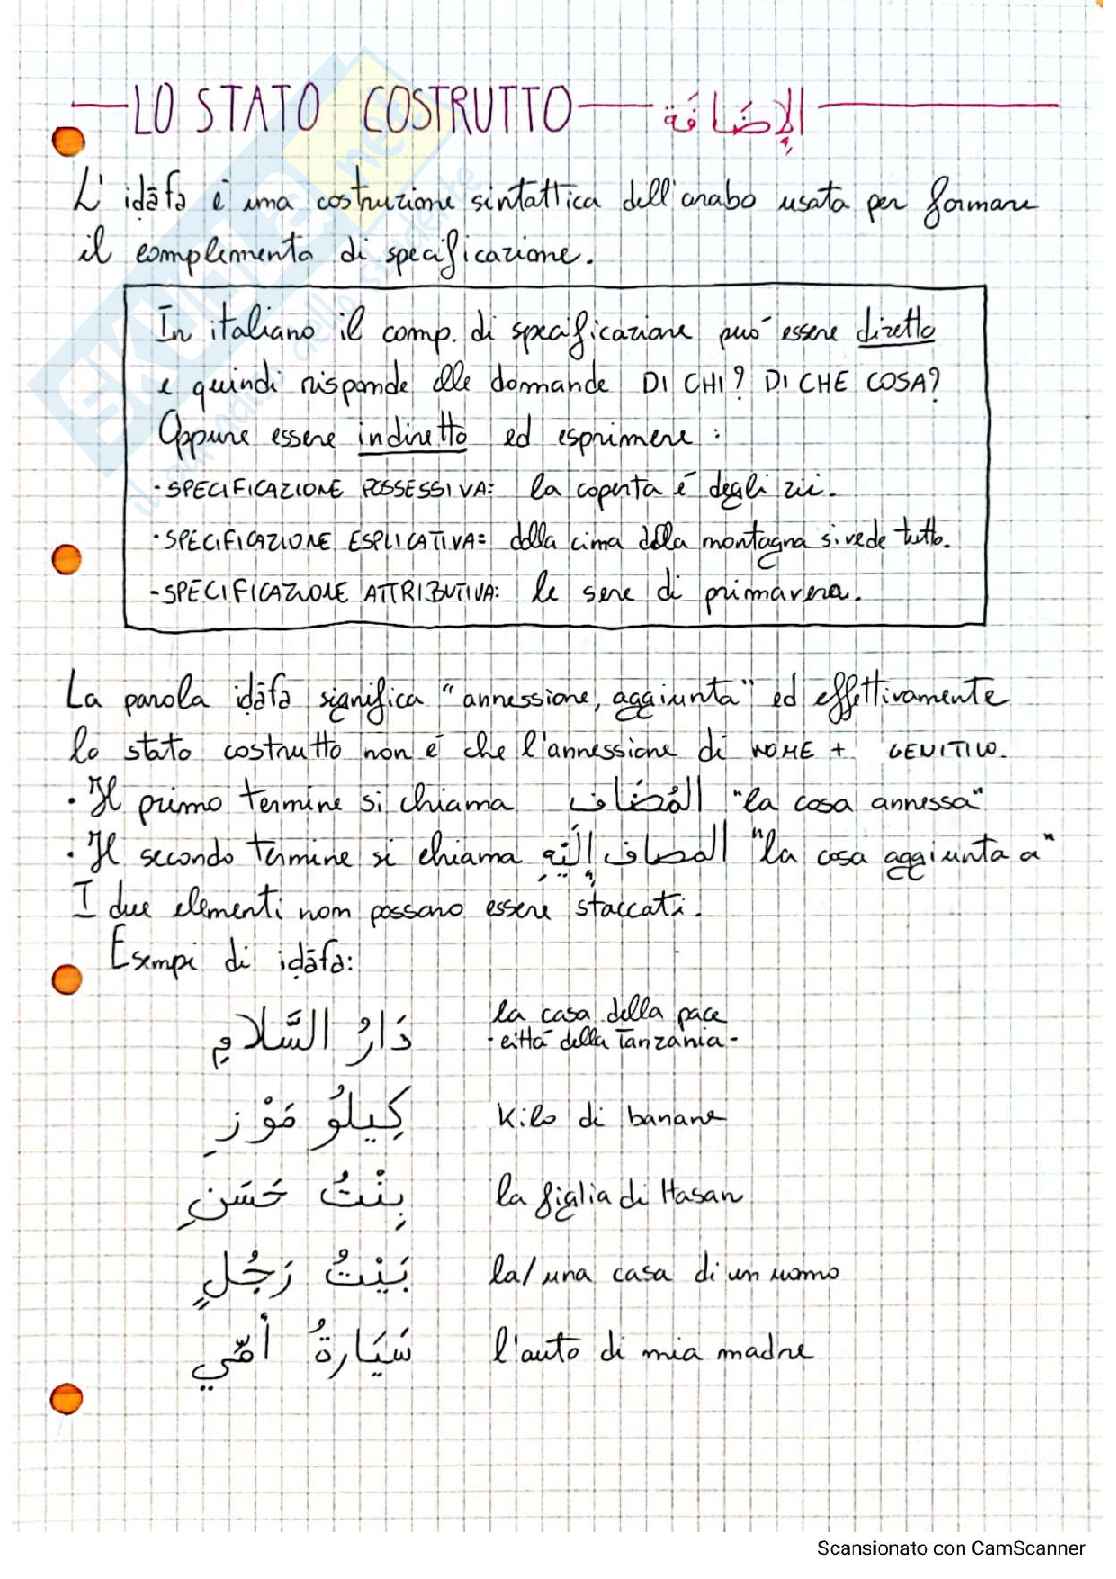 LO STATO COSTRUTTO الإِضَافَة
L'iḍāfa è una costruzione sintattica dell'arabo usata per formare
il complemento di specificazione.
In italiano il comp. di specificazione può essere diretto
e quindi risponde alle domande DI CHI? DI CHE COSA?
Oppure essere indiretto ed esprimere:
· SPECIFICAZIONE POSSESSIVA: la coperta è degli zii.
· SPECIFICAZIONE ESPLICATIVA: dalla cima della montagna si vede tutto.
- SPECIFICAZIONE ATTRIBUTIVA: le sere di primavera.
La parola iḍāfa significa "annessione, aggiunta" ed effettivamente
lo stato costrutto non è che l'annessione di NOME + GENITIVO.
· Il primo termine si chiama المُضَاف "la cosa annessa"
· Il secondo termine si chiama المصاف إِلَيْهِ "la cosa aggiunta a"
I due elementi non possono essere staccati.
Esempi di iḍāfa:
دَارُ السَّلامِ la casa della pace
- città della Tanzania -
كِيلُو مَوْزِ Kilo di banane
بِنْتُ حَسَنِ la figlia di Hasan
بَيْتُ رَجُلٍ la/una casa di un uomo
سَيَارةُ أمّي l'auto di mia madre
Scansionato con CamScanner